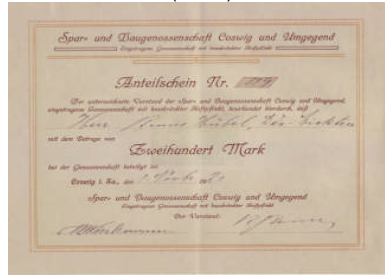 Spar- und Baugenossenschaft Coswig und Umgegend
Eingetragene Genossenschaft mit beschränkter Haftpflicht
Anteilschein Nr.
Der unterzeichnete Vorstand der Spar- und Baugenossenschaft Coswig und Umgegend,
eingetragene Genossenschaft mit beschränkter Haftpflicht, beurkundet hierdurch, daß
Herr
mit dem Betrage von
Zweihundert Mark
bei der Genossenschaft beteiligt ist.
Coswig i. Sa., den
Spar- und Baugenossenschaft Coswig und Umgegend
Eingetragene Genossenschaft mit beschränkter Haftpflicht
Der Vorstand: